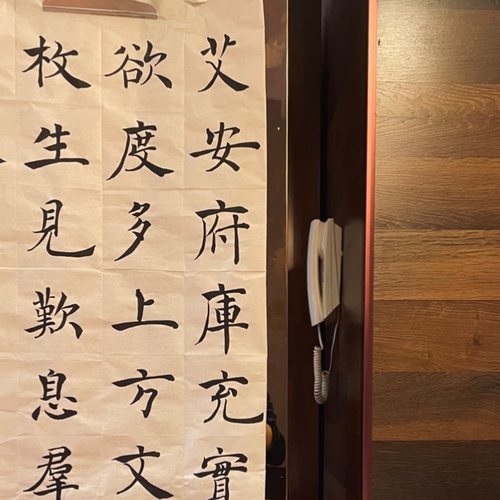 艾安府庫充實
欲度多上方文
枚生見歎息羣